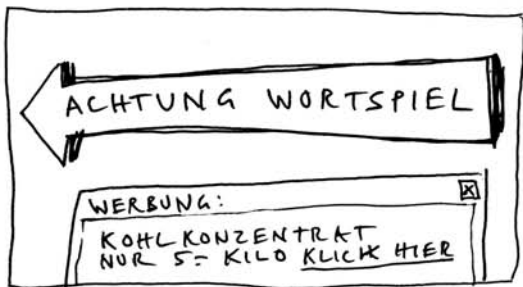 ACHTUNG WORTSPIEL
WERBUNG:
KOHLKONZENTRAT
NUR 5= KILO KLICK HIER